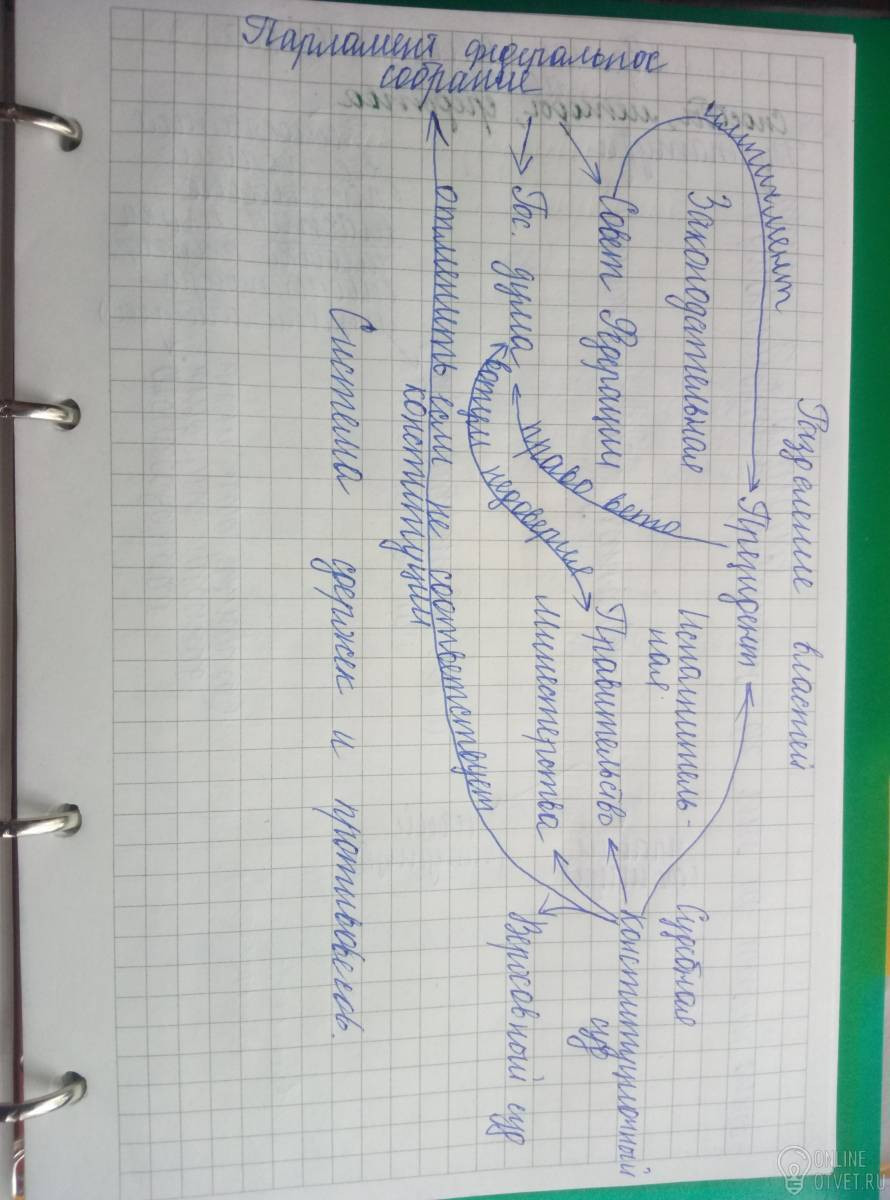 Разделение властей
Президент
импичмент
Законодательная
Исполнитель-
ная
Судебная
Парламент федеральное
собрание
Совет Федерации
Правительство
Конституционный
суд
право вето
Гос. дума
Министерства
Верховный суд
вотум недоверия
отменить если не соответствует
конституции
Система сдержек и противовесов.
ONLINE
OTVET.RU